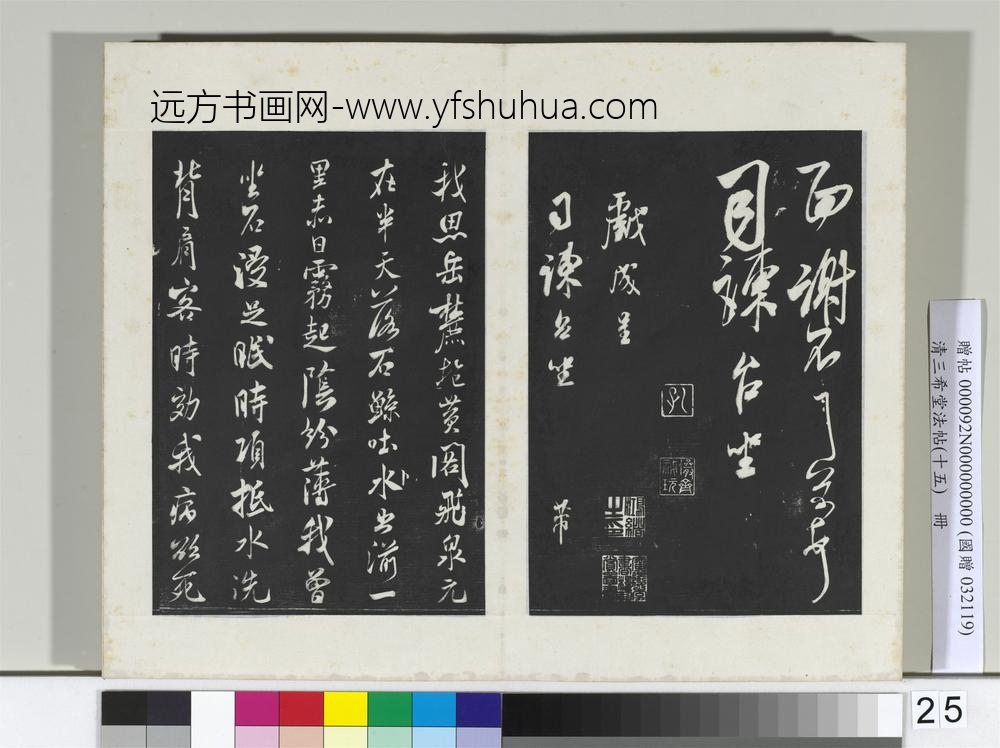 远方书画网-www.yfshuhua.com
面谢不
司諫台坐
芾
戲成呈
司諫台坐
我思岳麓抱黄閣飛泉元
在半天落石鯨吐水出湍一
里赤日霧起陰紛薄我曾
坐石浸足眠時項抵水洗
背肩客時效我病欲死
贈帖 000092N000000000 (國贈 032119)
清三希堂法帖(十五) 冊
25